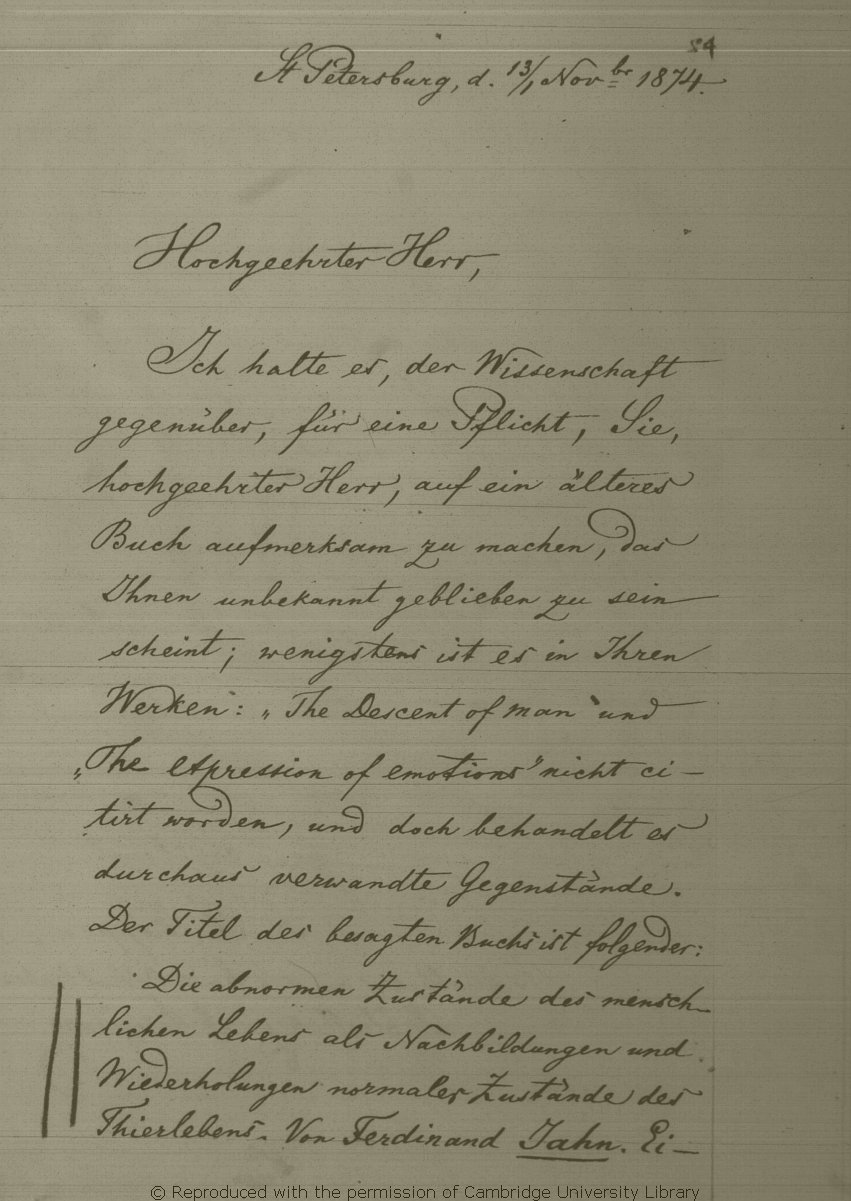 84
St Petersburg, d. 13/1 Novbr 1874.
Hochgeehrter Herr,
Ich halte es, der Wissenschaft
gegenüber, für eine Pflicht, Sie,
hochgeehrter Herr, auf ein älteres
Buch aufmerksam zu machen, das
Ihnen unbekannt geblieben zu sein
scheint; wenigstens ist es in Ihren
Werken: „The Descent of man" und
„The expression of emotions" nicht ci-
tirt worden, und doch behandelt es
durchaus verwandte Gegenstände.
Der Titel des besagten Buchs ist folgender:
Die abnormen Zustände des mensch-
lichen Lebens als Nachbildungen und
Wiederholungen normaler Zustände des
Thierlebens. Von Ferdinand Jahn. Ei-
© Reproduced with the permission of Cambridge University Library